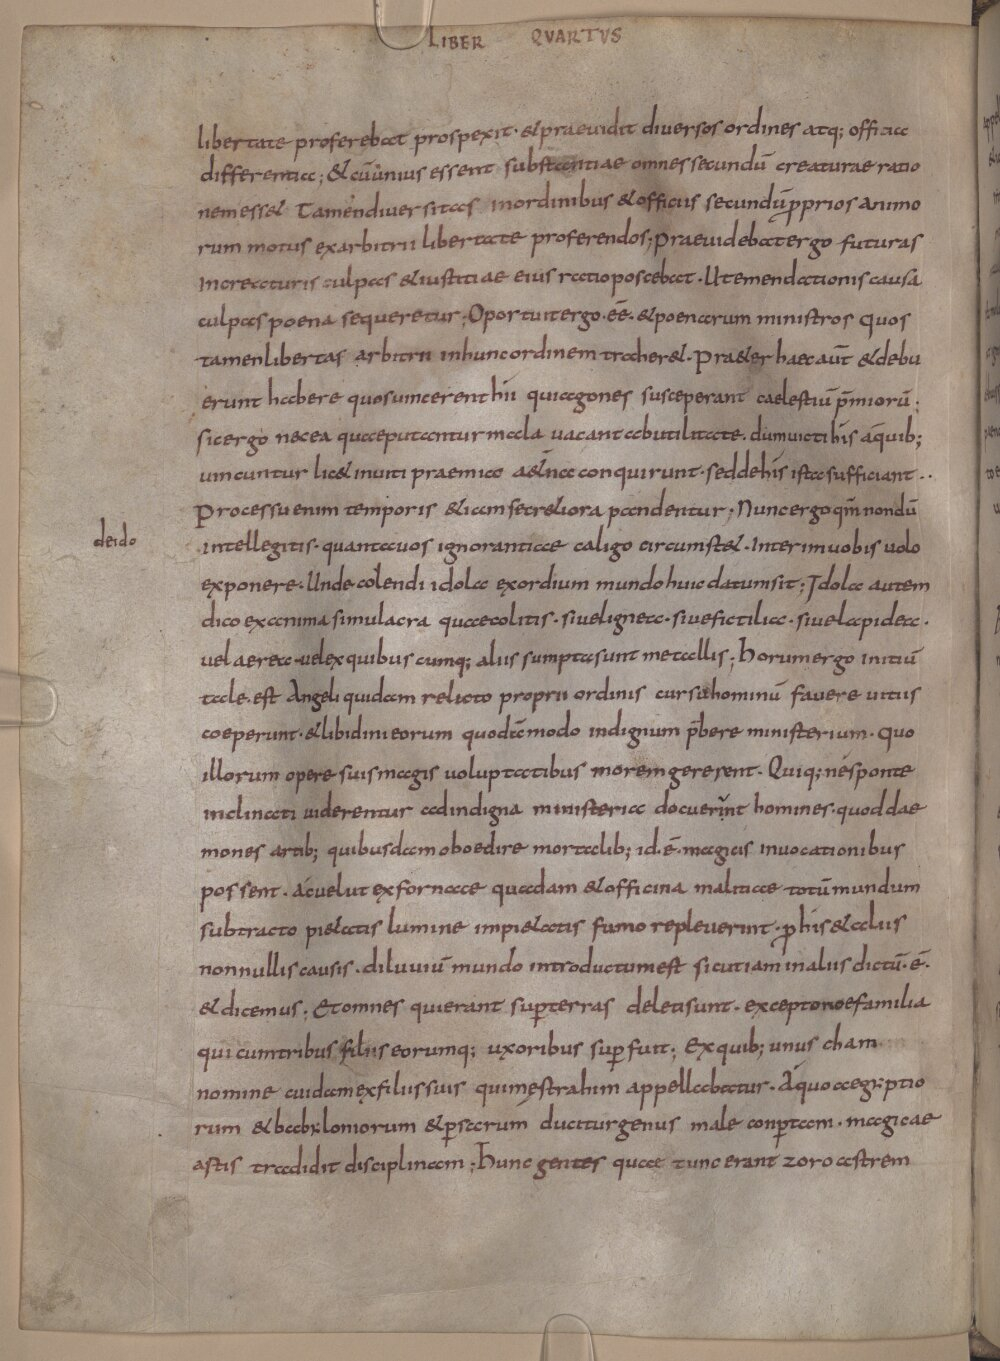 LIBER QVARTVS
libertate proferebat prospexit · & praeuidit diuersos ordines atq; officia
differentia; & cū unius essent substantiae omnes secundū creaturae ratio
nem ess& Tamen diuersitas in ordinibus & officiis secundū pprios animo
rum motus ex arbitrii libertate proferendos; Praeuidebat ergo futuras
in creaturis culpas & iustitiae eius ratio poscebat · Ut emendationis causa
culpas poena sequeretur; Oportuit ergo · eē · & poenarum ministros quos
tamen libertas arbitrii in hunc ordinem traher& · Pra&er haec aūt & debu
erunt habere quos uincerent hii qui agones susceperant caelestiū p̄miorū;
sic ergo nec ea quae putantur mala uacant ab utilitate · dum uicti his a quib;
uincuntur lic& inuiti praemia a&erna conquirunt · sed de his ista sufficiant ··
Processu enim temporis & iam secr&iora pandentur; Nunc ergo qm̄ nondū
deido
intellegitis · quanta uos ignorantiae caligo circumst& · Interim uobis uolo
exponere · Unde colendi idola exordium mundo huic datum sit; Idola autem
dico exanima simulacra quae colitis · siue lignea · siue fictilia · siue lapidea ·
uel aerea · uel ex quibuscumq; aliis sumpta sunt metallis; Horum ergo initiū
tale · est Angeli quidam relicto proprii ordinis cursu hominū fauere uitiis
coeperunt · & libidini eorum quodāmodo indignum p̄bere ministerium · quo
illorum opere suis magis uoluptatibus morem gererent · Quiq; ne sponte
inclinati uiderentur ad indigna ministeria docuerunt homines · quod dae
mones artib; quibusdam oboedire mortalib; id · ē · magicis inuocationibus
possent · ac uelut ex fornace quadam & officina malitiae totū mundum
subtracto pi&atis lumine impi&atis fumo repleuerint · p his & aliis
nonnullis causis · diluuiū mundo introductum est sicut iam in aliis dictū · ē ·
& dicemus; Et omnes qui erant sup terras deleti sunt · excepto noe familia
qui cum tribus filiis eorumq; uxoribus supfuit; Ex quib; unus cham
nomine cuidam ex filiis suis qui mestrahim appellabatur · A quo aegyptio
rum & babyloniorum & psarum ducitur genus male conptam · magicae
astis tradidit disciplinam; Hunc gentes quae tunc erant zoroastrem